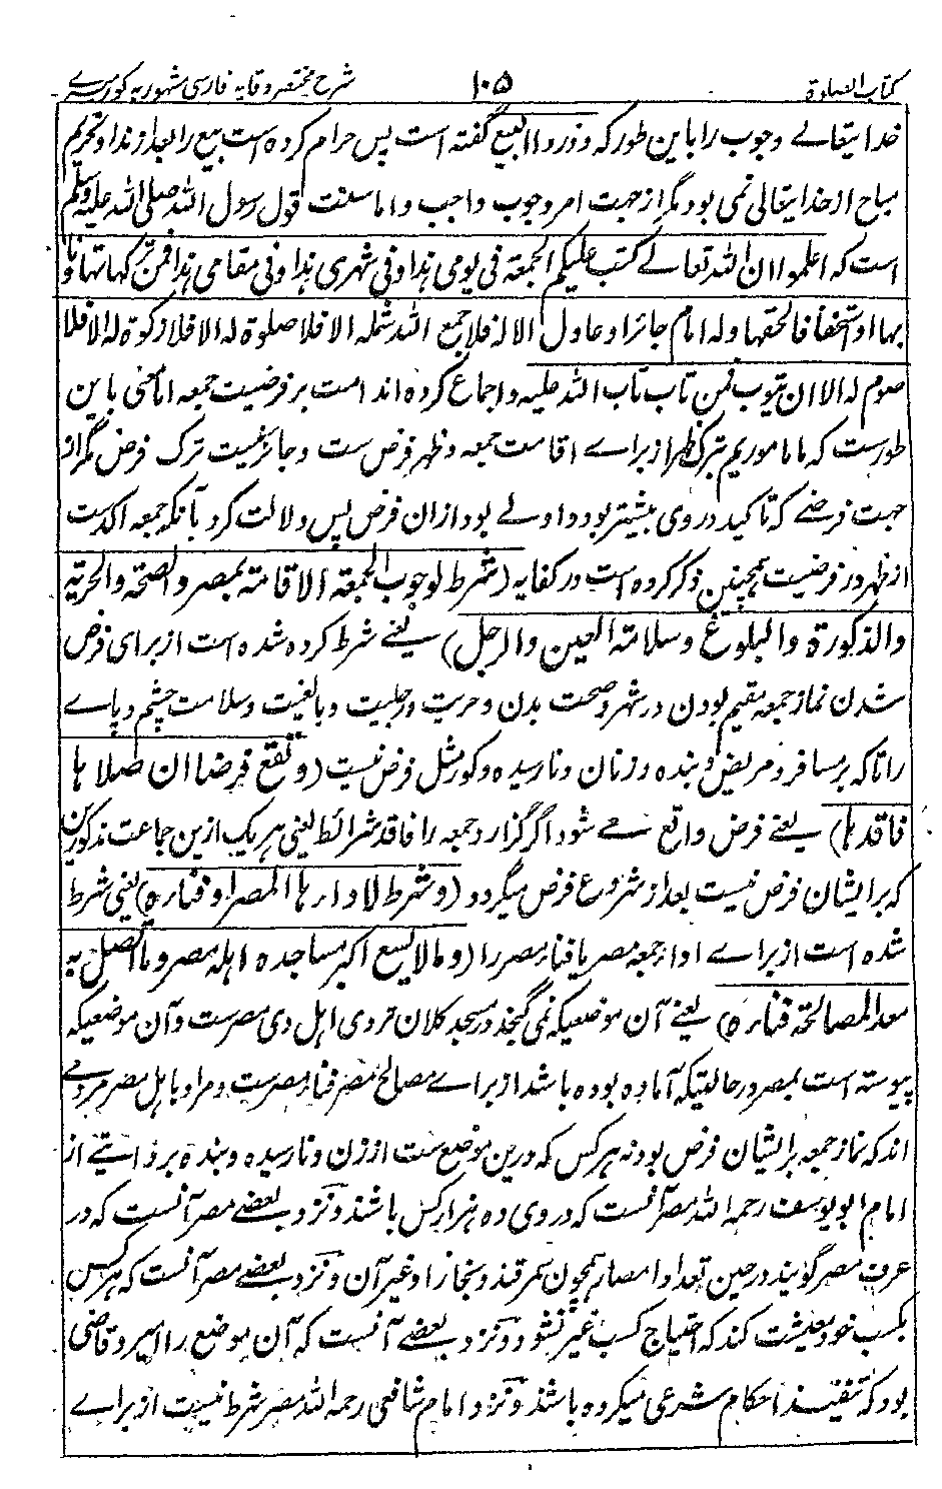 کتاب الصلوة ۱۰۵ شرح مختصر وقایه فارسی مشهور به کور میری
خدایتعالے وجوب را باین طور که وذروا البیع گفته است پس حرام کرده است بیع را بعد از ندا و تحریم
مباح از خدایتعالی نمی بود مگر از جهت امر وجوب واجب واما سنت قول رسول الله صلی الله علیه وسلم
است که اعلموا ان الله تعالے کتب علیکم الجمعة فی یومی هذا وفی شهری هذا وفی مقامی هذا فمن ترکها تهاونا
بها او استخفافا بحقها وله امام جائر او عادل الا لا فلا جمع الله شمله الا فلا صلوة له الا فلا زکوة له الا فلا
صوم له الا ان یتوب فمن تاب تاب الله علیه و اجماع کرده اند امت بر فرضیت جمعه اما معنی باین
طورست که ما ماموریم بترک ظهر از برای اقامت جمعه و ظهر فرض ست و جائز نیست ترک فرض مگر از
جهت فرضے که تاکید در وی بیشتر بود و اولے بود ازان فرض پس دلالت کرد بآنکه جمعه آکد ست
از ظهر در فرضیت همچنین ذکر کرده است در کفایه (شرط لوجوب الجمعة الاقامة بمصر والصحة والحریة
والذکورة والبلوغ وسلامة العین والرجل) یعنے شرط کرده شده است از برای فرض
شدن نماز جمعه مقیم بودن در شهر و صحت بدن و حریت و رجلیت و بالغیت و سلامت چشم و پاے
را تا که بر مسافر و مریض و بنده و زنان و نارسیده و کور و شل فرض نیست (وتقع فرضا ان صلاها
فاقدها) یعنے فرض واقع مے شود اگر گزارد جمعه را فاقد شرائط یعنی هر یک ازین جماعت مذکورین
که بر ایشان فرض نیست بعد از شروع فرض میگردد (وشرط لادائها المصر او فناؤه) یعنی شرط
شده است از برای ادای جمعه مصر یا فناء مصر را (وما لا یسع اکبر مساجده اهله مصر وما اتصل به
معدا لمصالحه فناؤه) یعنے آن موضعیکه نمی گنجد در مسجد کلان تر وی اهل وی مصر ست و آن موضعیکه
پیوسته است بمصر در حالتیکه آماده بوده باشد از برای مصالح مصر فناء مصر ست و مراد باهل مصر مردمے
اند که نماز جمعه بر ایشان فرض بود نه هر کس که درین موضع ست از زن و نارسیده و بنده بر روایتے از
امام ابو یوسف رحمه الله مصر آنست که در وی ده هزار کس باشد و نزد بعضے مصر آنست که در
عرف مصر گویند در حین تعداد امصار همچون سمرقند و بخارا و غیر آن و نزد بعضے مصر آنست که هر کس
بکسب خود معیشت کند که احتیاج کسب غیر نشود و نزد بعضے آنست که آن موضع را امیر و قاضی
بود که تنفیذ احکام شرعی میکرده باشد و نزد امام شافعی رحمه الله مصر شرط نیست از برای